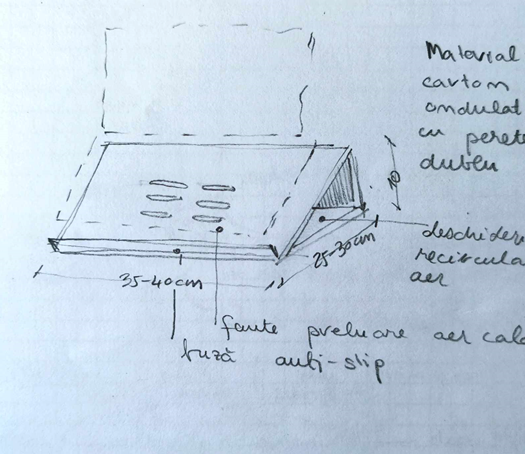 Material
carton
ondulat
cu perete
dublu
10
deschider
recircula
aer
25-30cm
35-40cm
fante preluare aer cald
buză anti-slip